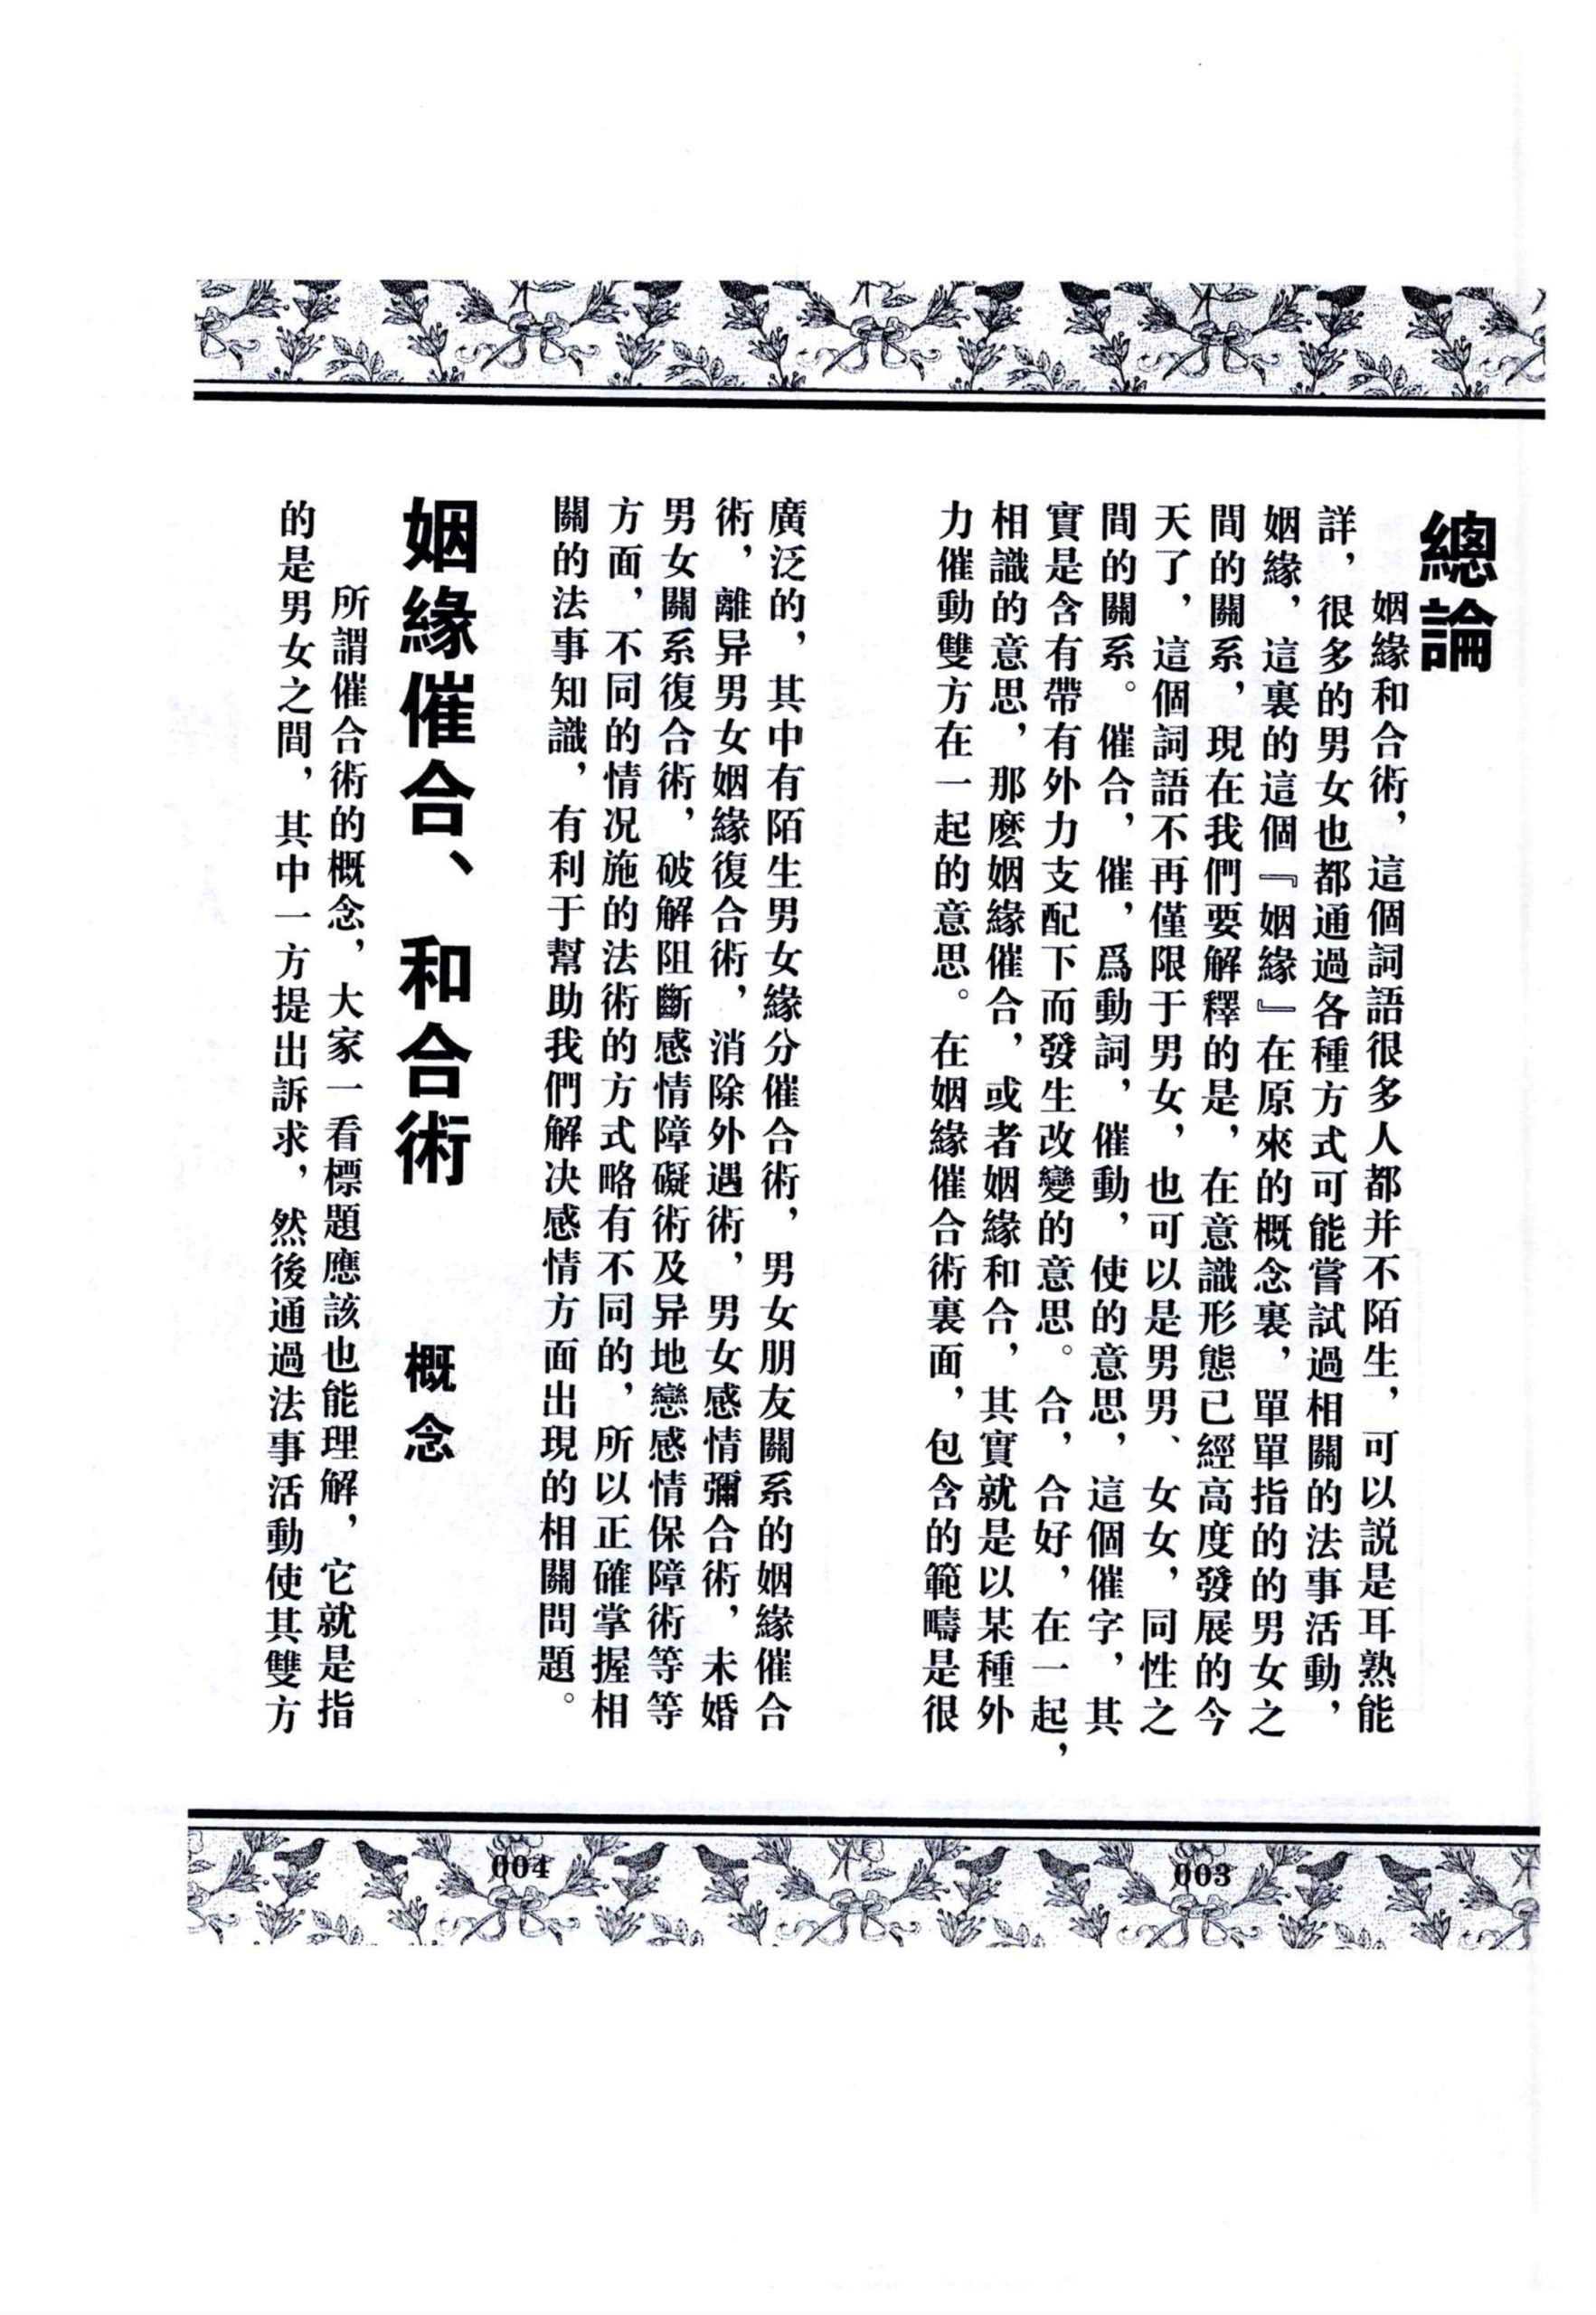 總論
姻緣和合術，這個詞語很多人都并不陌生，可以説是耳熟能
詳，很多的男女也都通過各種方式可能嘗試過相關的法事活動，
姻緣，這裏的這個『姻緣』在原來的概念裏，單單指的的男女之
間的關系，現在我們要解釋的是，在意識形態已經高度發展的今
天了，這個詞語不再僅限于男女，也可以是男男、女女，同性之
間的關系。催合，催，爲動詞，催動，使的意思，這個催字，其
實是含有帶有外力支配下而發生改變的意思。合，合好，在一起，
相識的意思，那麽姻緣催合，或者姻緣和合，其實就是以某種外
力催動雙方在一起的意思。在姻緣催合術裏面，包含的範疇是很
003
廣泛的，其中有陌生男女緣分催合術，男女朋友關系的姻緣催合
術，離异男女姻緣復合術，消除外遇術，男女感情彌合術，未婚
男女關系復合術，破解阻斷感情障礙術及异地戀感情保障術等等
方面，不同的情况施的法術的方式略有不同的，所以正確掌握相
關的法事知識，有利于幫助我們解决感情方面出現的相關問題。
姻緣催合、和合術 概念
所謂催合術的概念，大家一看標題應該也能理解，它就是指
的是男女之間，其中一方提出訴求，然後通過法事活動使其雙方
004